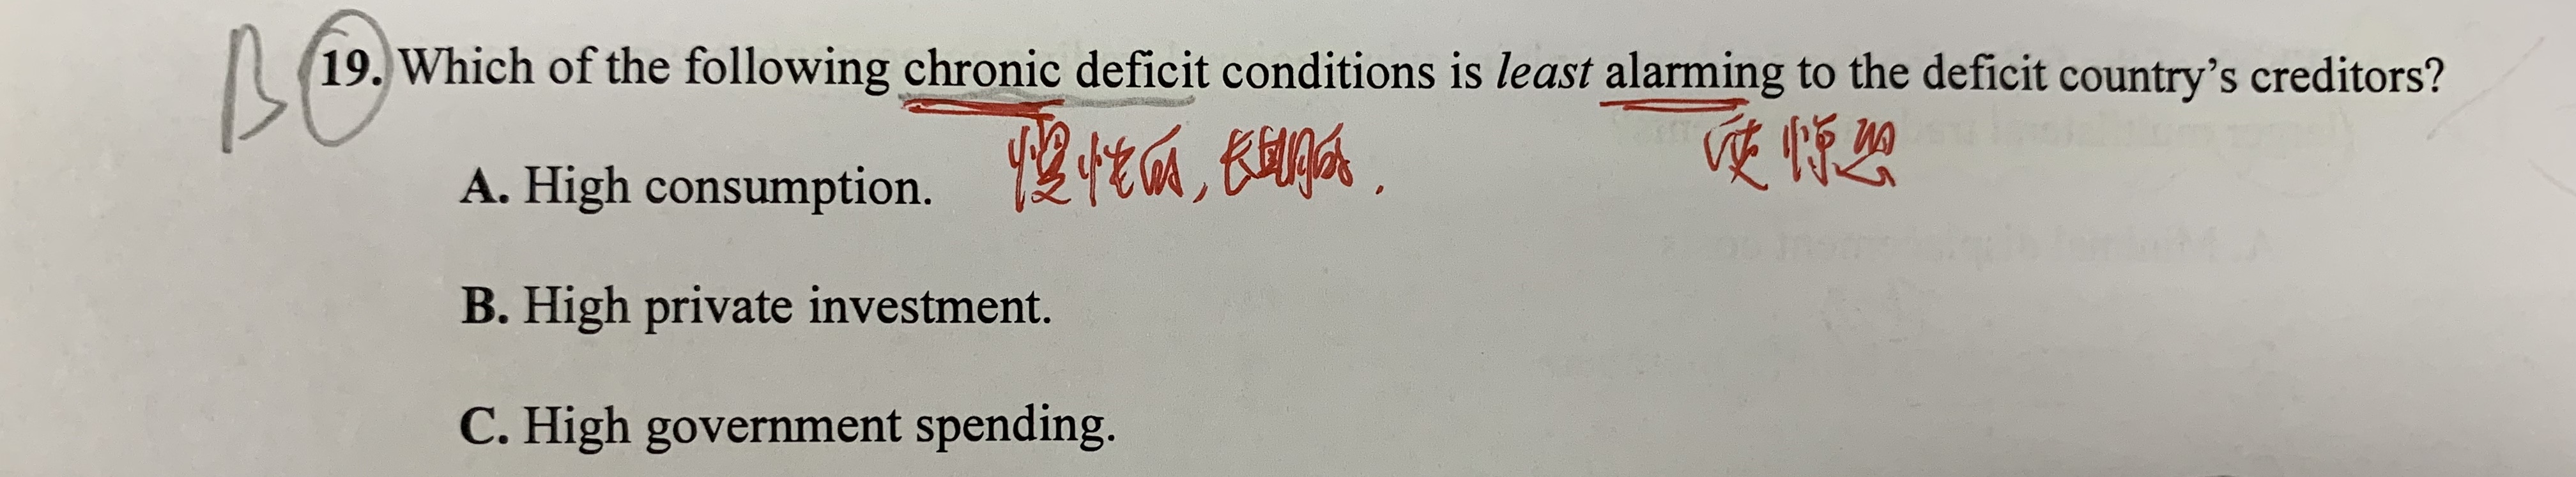 B 19. Which of the following chronic deficit conditions is least alarming to the deficit country's creditors?
慢性的,长期的. 使惊恐
A. High consumption.
B. High private investment.
C. High government spending.